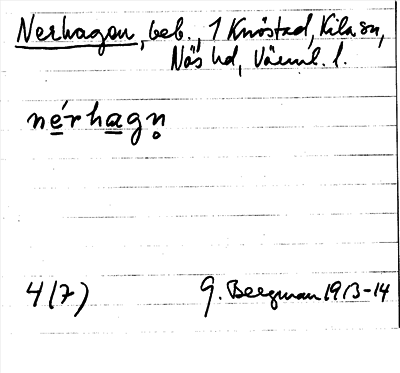 Nerhagen, beb., 1 Knöstad, Kila sn,
Näs hd, Värml. l.
nérhagn̥
4(7) G. Bergman 1913-14